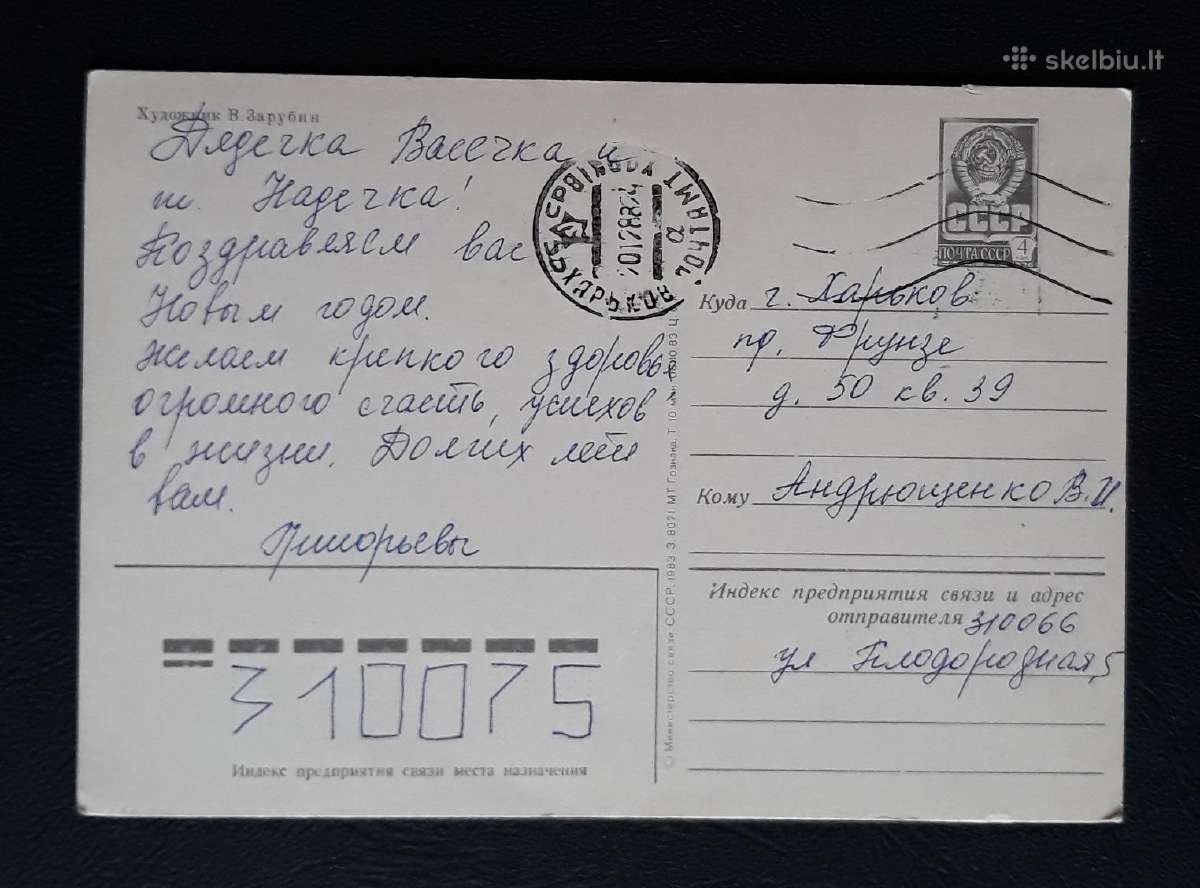 skelbiu.lt
Художник В. Зарубин
Дядечка Васечка и
т. Надечка!
Поздравляем вас
Новым годом.
Желаем крепкого здоровья,
огромного счасть, успехов
в жизни. Долгих лет
вам.
Григорьевы
СССР
ПОЧТА СССР
4
Куда г. Харьков
пр. Фрунзе
д. 50 кв. 39
Кому Андрющенко В.И.
Индекс предприятия связи и адрес
отправителя 310066
ул Плодородная, 5
310075
Индекс предприятия связи места назначения
© Министерство связи СССР. 1983. З. 8071. МТ Гознака.